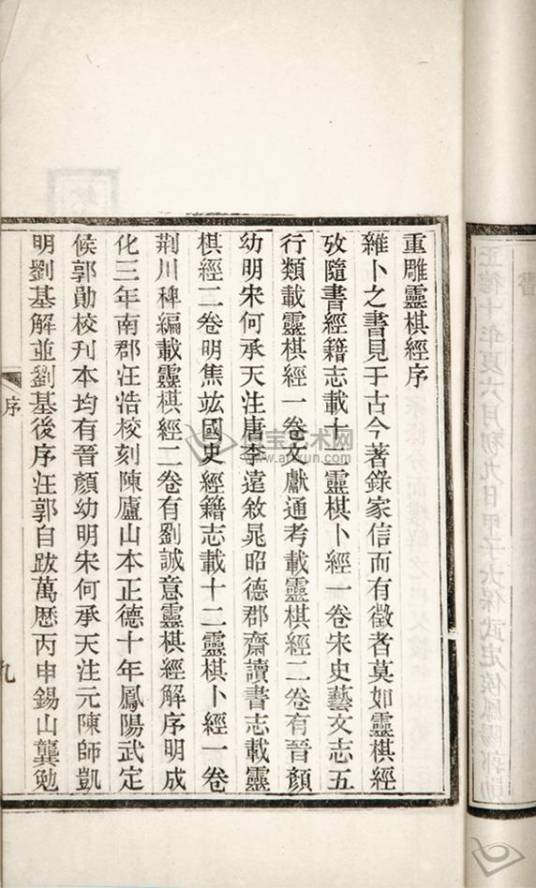 重雕靈棋經序
雜卜之書見于古今著錄家信而有徵者莫如靈棋經
攷隨書經籍志載十二靈棋卜經一卷宋史藝文志五
行類載靈棋經一卷文獻通考載靈棋經二卷有晉顏
幼明宋何承天注唐李遠敘晁昭德郡齋讀書志載靈
棋經二卷明焦竑國史經籍志載十二靈棋卜經一卷
荆川稗編載靈棋經二卷有劉誠意靈棋經解序明成
化三年南郡汪浩校刻陳廬山本正德十年鳳陽武定
候郭勛校刊本均有晉顏幼明宋何承天注元陳師凱
明劉基解並劉基後序汪郭自跋萬歷丙申錫山龔勉
序
九
正德十年夏六月初九日甲子太保武定侯鳳陽郭勛